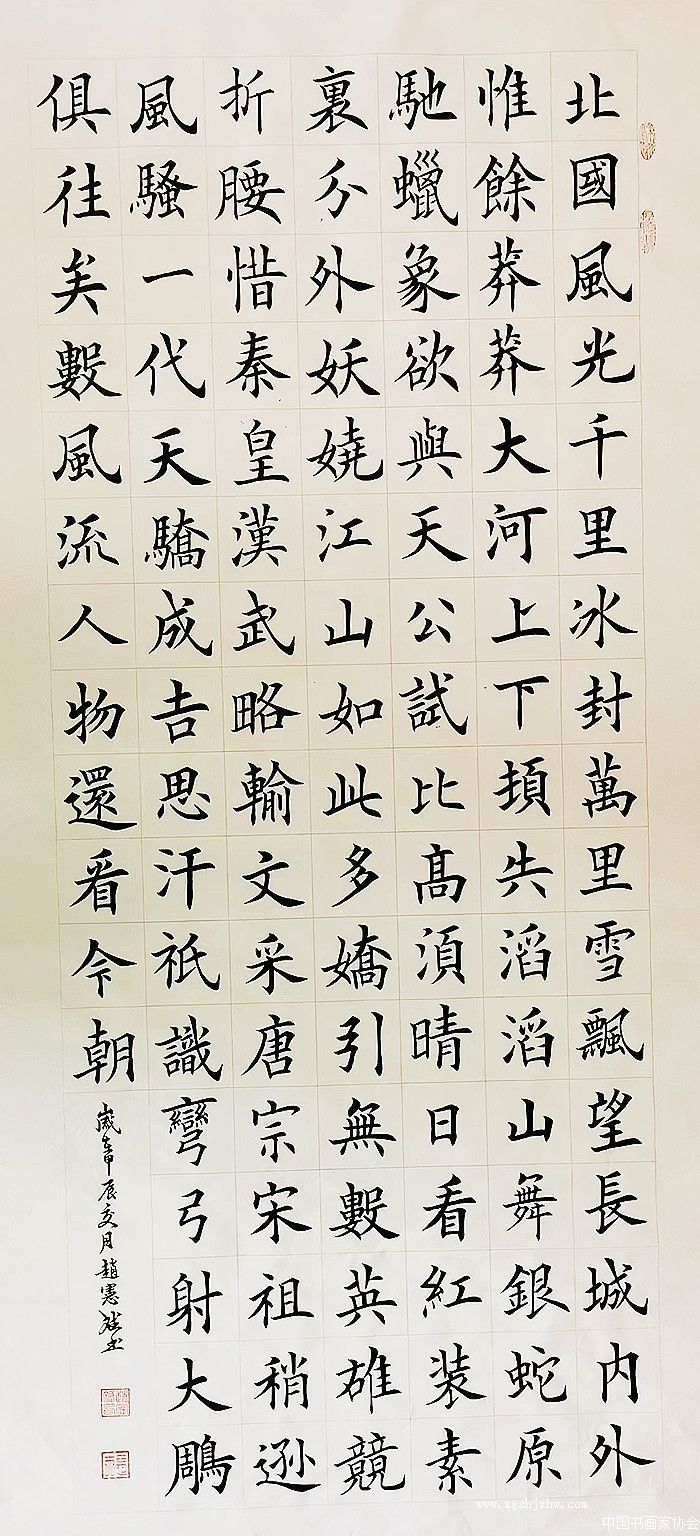 北國風光千里冰封萬里雪飄望長城内外
惟餘莽莽大河上下頓失滔滔山舞銀蛇原
馳蠟象欲與天公試比髙須晴日看紅装素
裏分外妖嬈江山如此多嬌引無數英雄競
折腰惜秦皇漢武略輸文采唐宗宋祖稍遜
風騷一代天驕成吉思汗祇識彎弓射大鵰
俱往矣數風流人物還看今朝
歲在甲辰月趙憲书
www.zgshjxhw.com
中国书画家协会